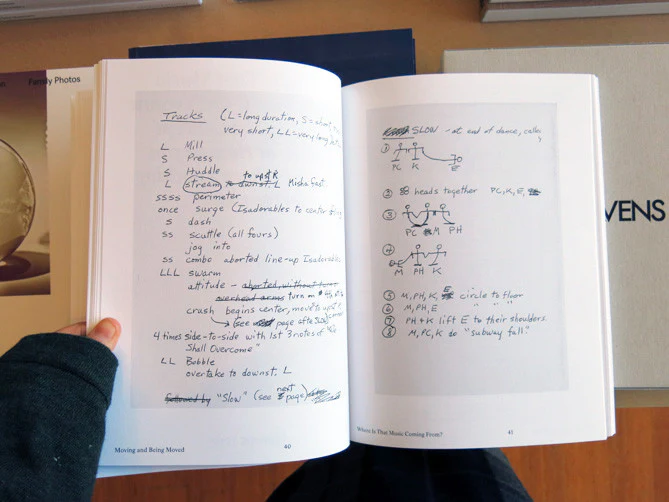 Family Photos
Tracks (L = long duration, S = short,
very short, LL = very long
L Mill
S Press
S Huddle
to upst R
L stream to downst. L Misha fast
ssss perimeter
once surge (Isadorables to center
s dash
ss scuttle (all fours)
jog into
ss combo aborted line-up Isadorables
LLL swarm
attitude - aborted, without
overhead arms turn
crash begins center, moves to upst
(see page after
4 times side-to-side with 1st 3 notes of "We
Shall Overcome"
LL Bobble
overtake to downst. L
followed by "Slow" (see next page)
Moving and Being Moved
40
SLOW - at end of dance,
1
PC K E
2 heads together PC, K, E,
3
PC M PH
4
M PH K
5 M, PH, K, E circle to floor
6 M, PH, E " " "
7 PH + K lift E to their shoulders.
8 M, PC, K do "subway fall"
Where Is That Music Coming From?
41
VENS